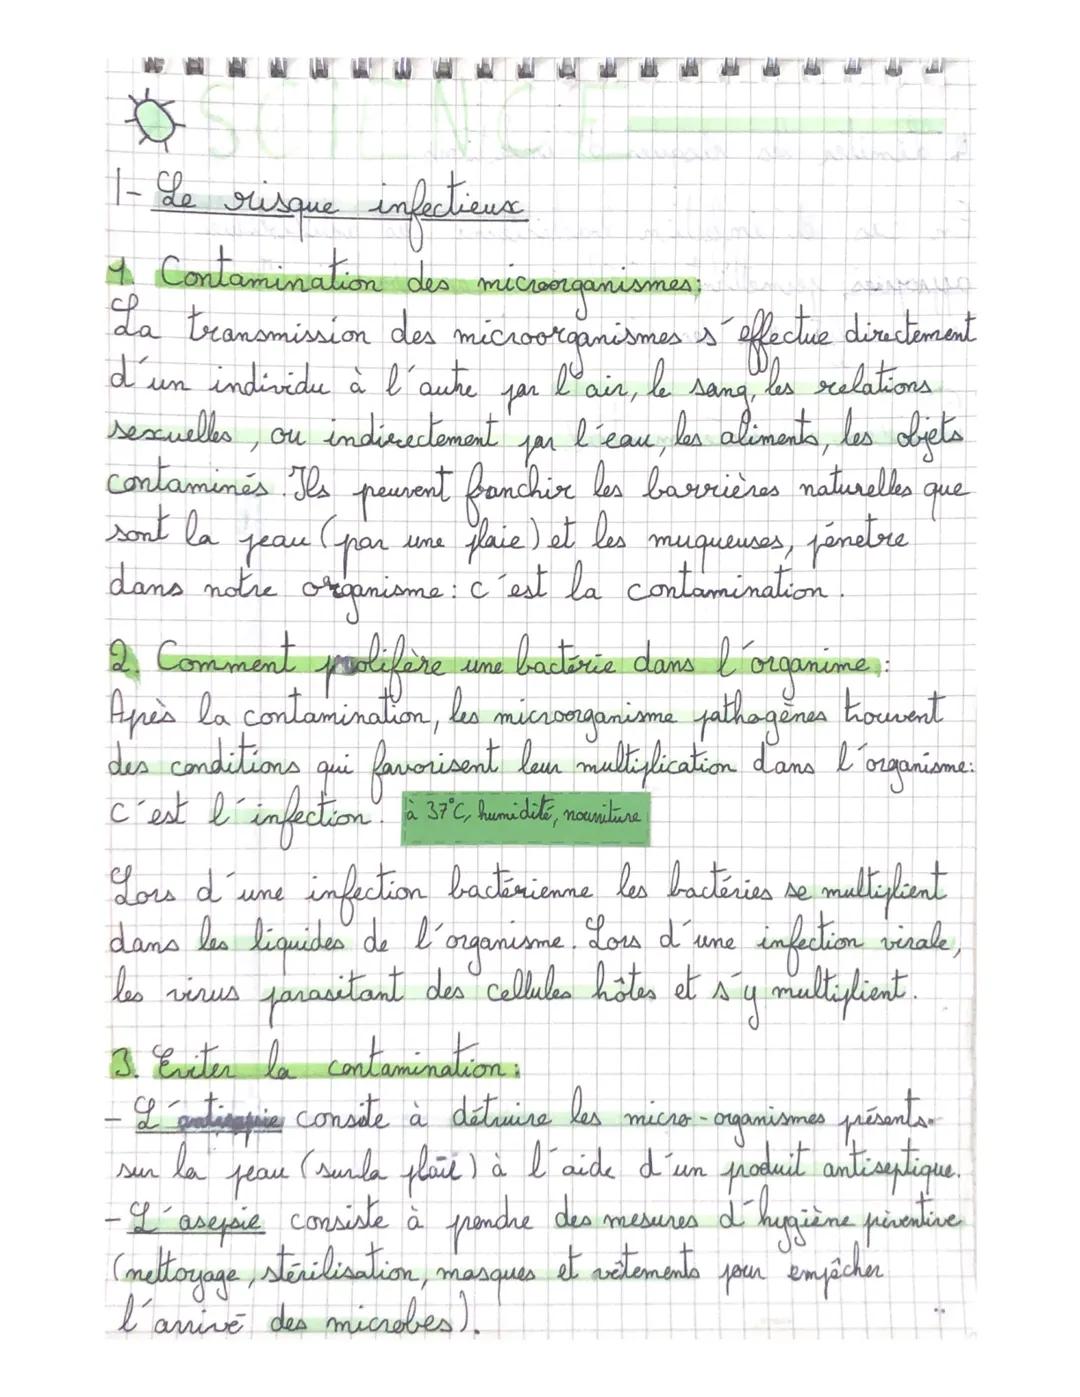 SCIENCE
1- Le risque infectieux
1. Contamination des microorganismes:
La transmission des microorganismes s'effectue directement
d'un individu à l'autre par l'air, le sang, les relations
sexuelles, ou indirectement par l'eau, les aliments, les objets
contaminés. Ils peuvent franchir les barrières naturelles que
sont la peau (par une plaie) et les muqueuses, pénetre
dans notre organisme: c'est la contamination.
2. Comment prolifère une bactérie dans l'organime:
Après la contamination, les microorganisme pathogènes trouvent
des conditions qui favorisent leur multiplication dans l'organisme:
c'est l'infection. à 37°C, humidité, nourriture
Lors d'une infection bactérienne les bactéries se multiplient
dans les liquides de l'organisme. Lors d'une infection virale,
les virus parasitant des cellules hôtes et s'y multiplient.
3. Eviter la contamination:
- L'antisepsie consite à détruire les micro-organismes présents
sur la peau (sur la plaie) à l'aide d'un produit antiseptique.
- L'asepsie consiste à prendre des mesures d'hygiène préventive
(nettoyage, stérilisation, masques et vêtements pour empêcher
l'arrivé des microbes).